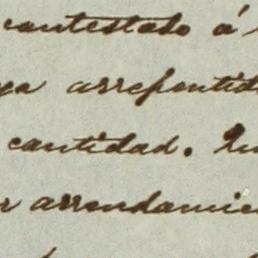 contestado á
arrepentid
cantidad.
arrendamie